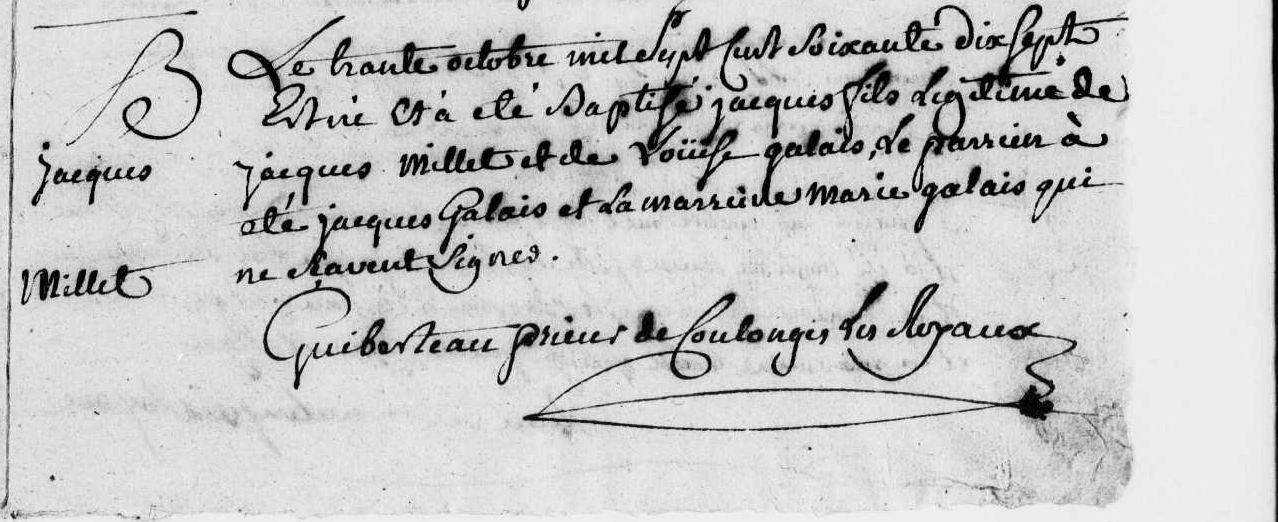 B
Le trante octobre mil sept cent soixante dix sept
Est né Et à eté Baptisé jacques fils Legitime de
jacques
jacques Millet et de Loüise galais, Le parrien à
eté jacques Galais et La marreine Marie galais qui
Millet
ne sçavent Signer.
Guiberteau prieur de Coulonges Les Royaux